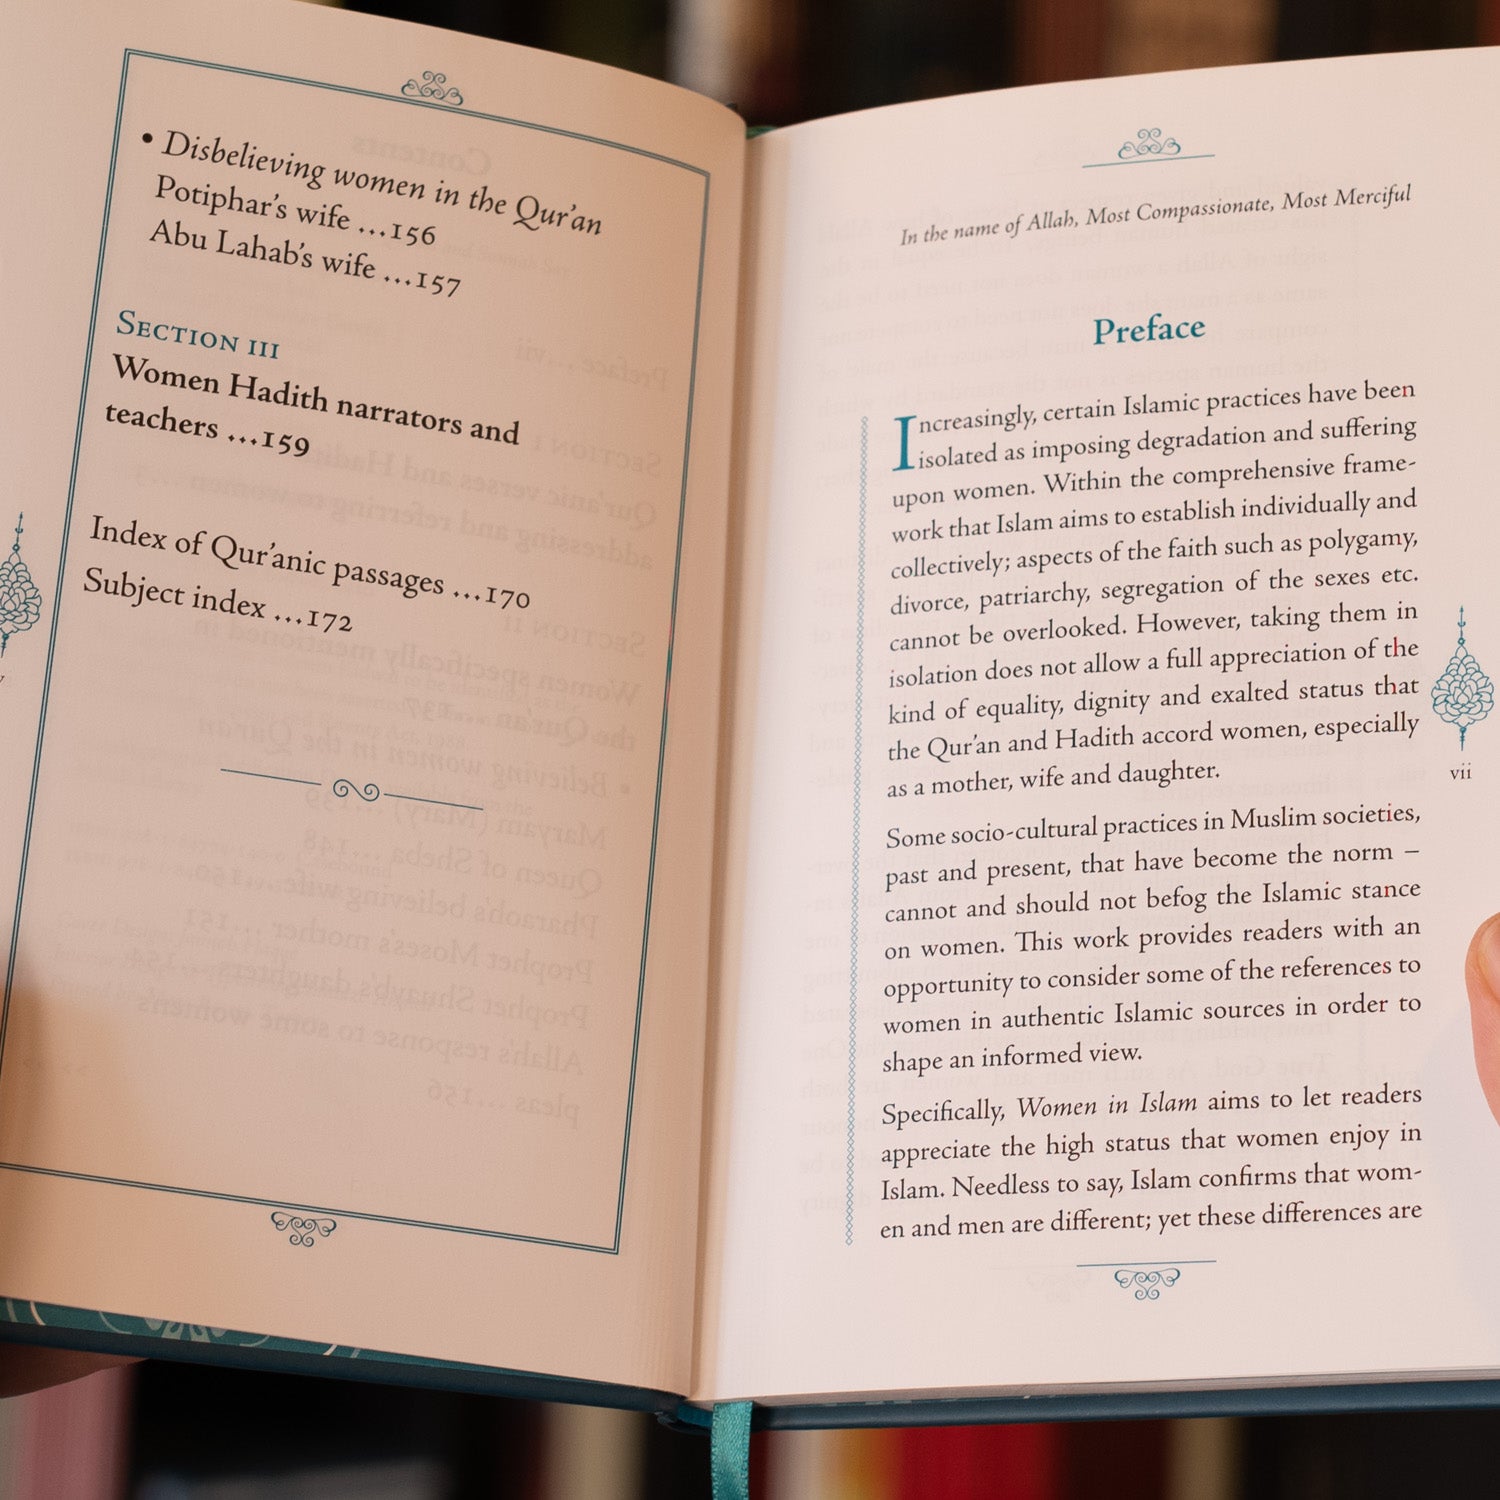 • Disbelieving women in the Qur'an
Potiphar's wife ...156
Abu Lahab's wife ...157
Section III
Women Hadith narrators and
teachers ...159
Index of Qur'anic passages ...170
Subject index ...172
In the name of Allah, Most Compassionate, Most Merciful
Preface
Increasingly, certain Islamic practices have been
isolated as imposing degradation and suffering
upon women. Within the comprehensive frame-
work that Islam aims to establish individually and
collectively; aspects of the faith such as polygamy,
divorce, patriarchy, segregation of the sexes etc.
cannot be overlooked. However, taking them in
isolation does not allow a full appreciation of the
kind of equality, dignity and exalted status that
the Qur'an and Hadith accord women, especially
as a mother, wife and daughter.
Some socio-cultural practices in Muslim societies,
past and present, that have become the norm –
cannot and should not befog the Islamic stance
on women. This work provides readers with an
opportunity to consider some of the references to
women in authentic Islamic sources in order to
shape an informed view.
Specifically, Women in Islam aims to let readers
appreciate the high status that women enjoy in
Islam. Needless to say, Islam confirms that wom-
en and men are different; yet these differences are
vii